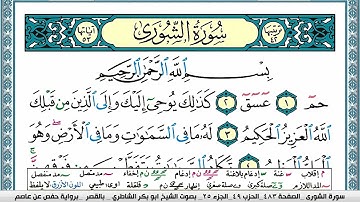 ترتيبها ٤٢
سُورَةُ الشُّورَىٰ
آياتها ٥٣
بِسْمِ اللَّهِ الرَّحْمَٰنِ الرَّحِيمِ
حمٓ ١ عٓسٓقٓ ٢ كَذَٰلِكَ يُوحِيٓ إِلَيْكَ وَإِلَى الَّذِينَ مِن قَبْلِكَ
اللَّهُ الْعَزِيزُ الْحَكِيمُ ٣ لَهُۥ مَا فِي السَّمَٰوَٰتِ وَمَا فِي الْأَرْضِ ۖ وَهُوَ
سورة الشورى . الصفحة ٤٨٣ الحزب ٤٩ الجزء ٢٥ . بصوت الشيخ ابو بكر الشاطري . بالقصر . برواية حفص عن عاصم